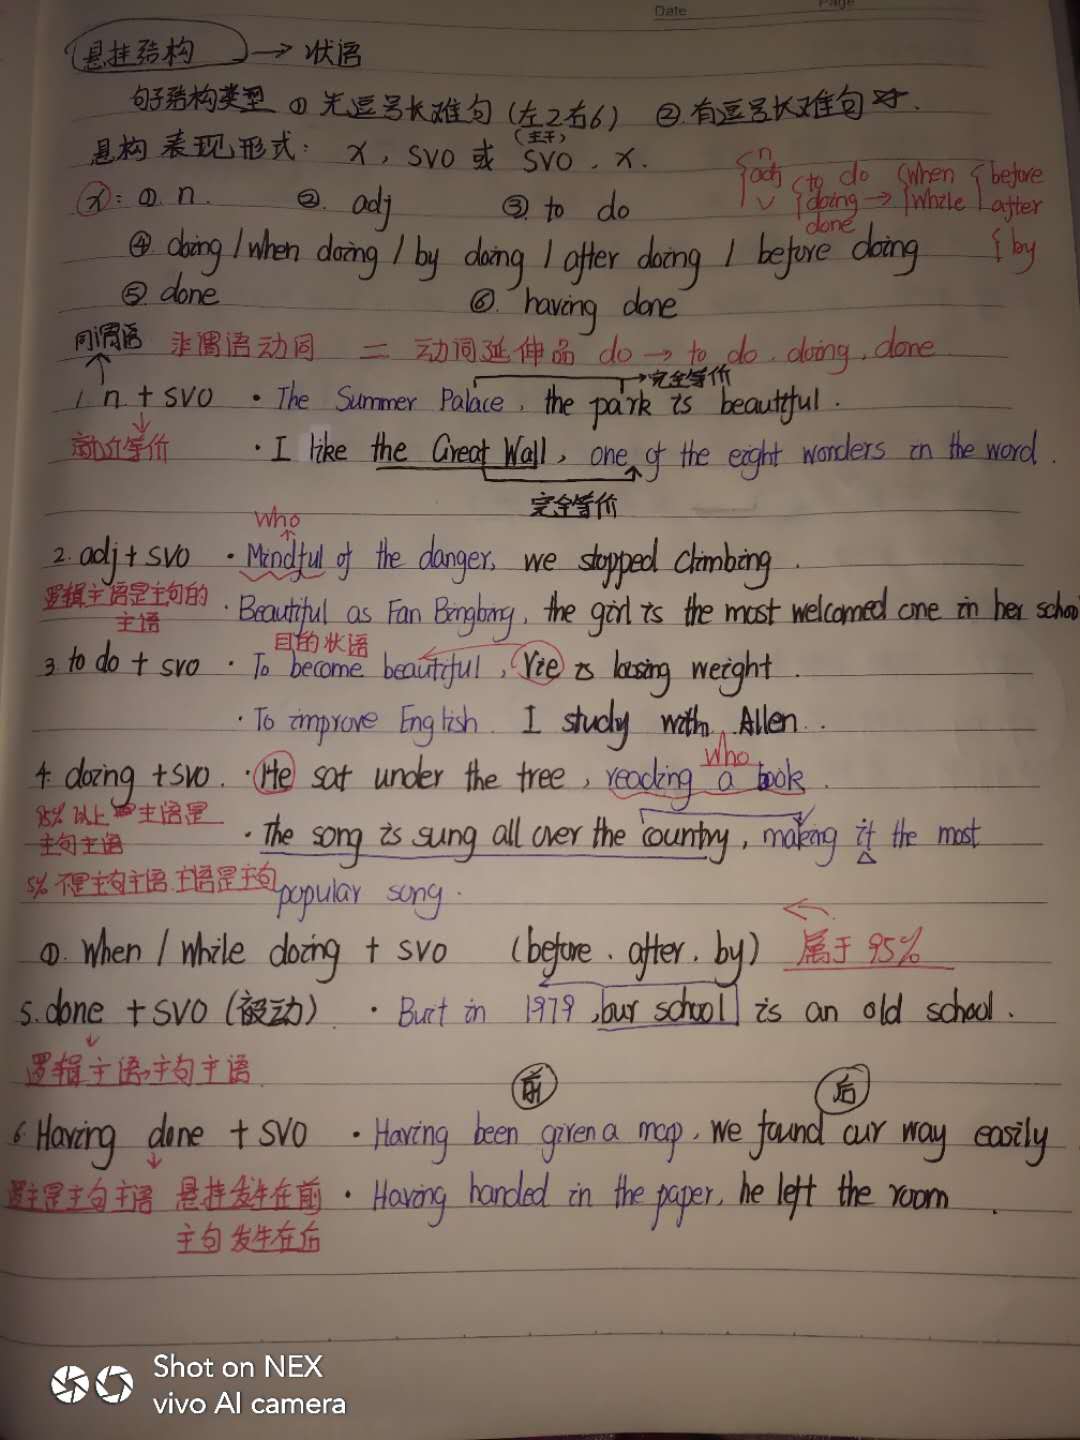 Date Page
悬挂结构 → 状语
句子结构类型 ① 无逗号长难句 (左2右6) ② 有逗号长难句
悬构 表现形式: x, SVO 或 SVO, x.
(主干)
x: ① n. ② adj ③ to do
n
adj
v
to do
doing → when
while
done
before
after
by
④ doing / when doing / by doing / after doing / before doing
⑤ done ⑥ having done
同谓语 非谓语动词 = 动词延伸品 do → to do. doing, done
1. n. + SVO · The Summer Palace, the park is beautiful.
完全等价
就近等价 · I like the Great Wall, one of the eight wonders in the word.
完全等价
who
2. adj + SVO · Mindful of the danger, we stopped climbing.
逻辑主语是主句的
主语
· Beautiful as Fan Bingbing, the girl is the most welcomed one in her school
目的状语
3. to do + SVO · To become beautiful, Vie is losing weight.
· To improve English. I study with Allen.
who
4. doing + SVO. · He sat under the tree, reading a book.
95%以上 主语是
主句主语
· The song is sung all over the country, making it the most
5% 不是主句主语 主语是主句
popular song.
①. When / While doing + SVO (before. after. by) 属于 95%
5. done + SVO (被动) · Buit in 1979, our school is an old school.
逻辑主语→主句主语
前 后
6. Having done + SVO · Having been given a map, we found our way easily
逻主是主句主语 悬挂发生在前
主句发生在后
· Having handed in the paper, he left the room.
Shot on NEX
vivo AI camera